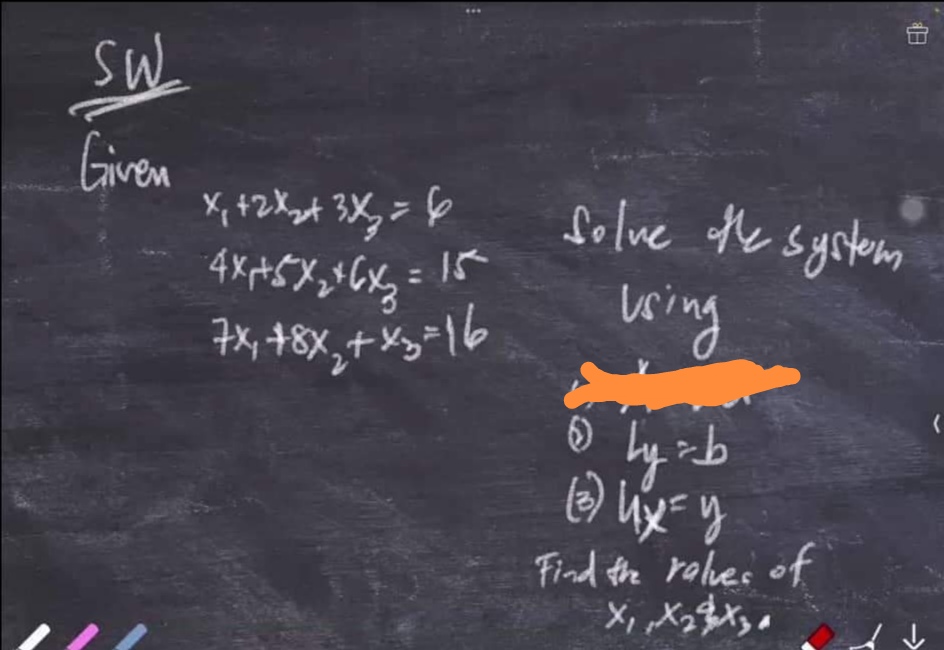 SW
Given
x₁+2x₂+3x₃=6
4x₁+5x₂+6x₃=15
7x₁+8x₂+x₃=16
Solve the system
using
Ly=b
(3) Ux=y
Find the values of
x₁, x₂ & x₃.